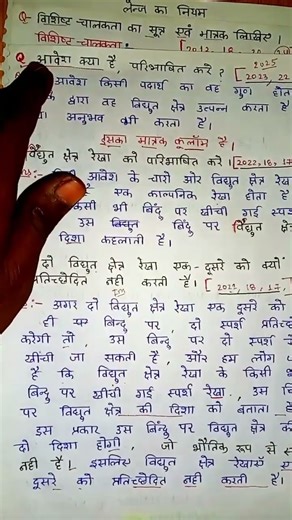 लेन्ज का नियम
Q- विशिष्ट चालकता का सूत्र एवं मात्रक लिखिए।
विशिष्ट चालकता:- [2012, 18, 20
Q आवेश क्या है, परिभाषित करे? [2023, 22 2025
आवेश किसी पदार्थ का वह गुण होता
के द्वारा वह विद्युत क्षेत्र उत्पन्न करता है
अनुभव भी करता है।
इसका मात्रक कूलॉम है।
विद्युत क्षेत्र रेखा को परिभाषित करे। [2022, 18, 17
आवेश के चारो ओर विद्युत क्षेत्र
एक काल्पनिक रेखा होता है
किसी भी बिंदु पर खीची गई
उस बिंदु पर विद्युत क्षेत्र
दिशा कहलाता है।
दो विद्युत क्षेत्र रेखा एक-दूसरे को क्यों
प्रतिच्छेदित नही करती है। [2021, 18, 17
:- अगर दो विद्युत क्षेत्र रेखा एक दूसरे को
ही बिन्दु पर, दो स्पर्श
करेगी तो, उस बिन्दु पर दो स्पर्श
खीची जा सकती है, और हम लोग
है कि विद्युत क्षेत्र रेखा के किसी
बिन्दु पर खीची गई स्पर्श रेखा, उस
पर विद्युत क्षेत्र की दिशा को बताता
इस प्रकार उस बिन्दु पर विद्युत क्षेत्र की
दो दिशा होगी, जो भौतिक रूप से
नही है। इसलिए विद्युत क्षेत्र रेखाएँ
दूसरे को प्रतिच्छेदित नही करती है।